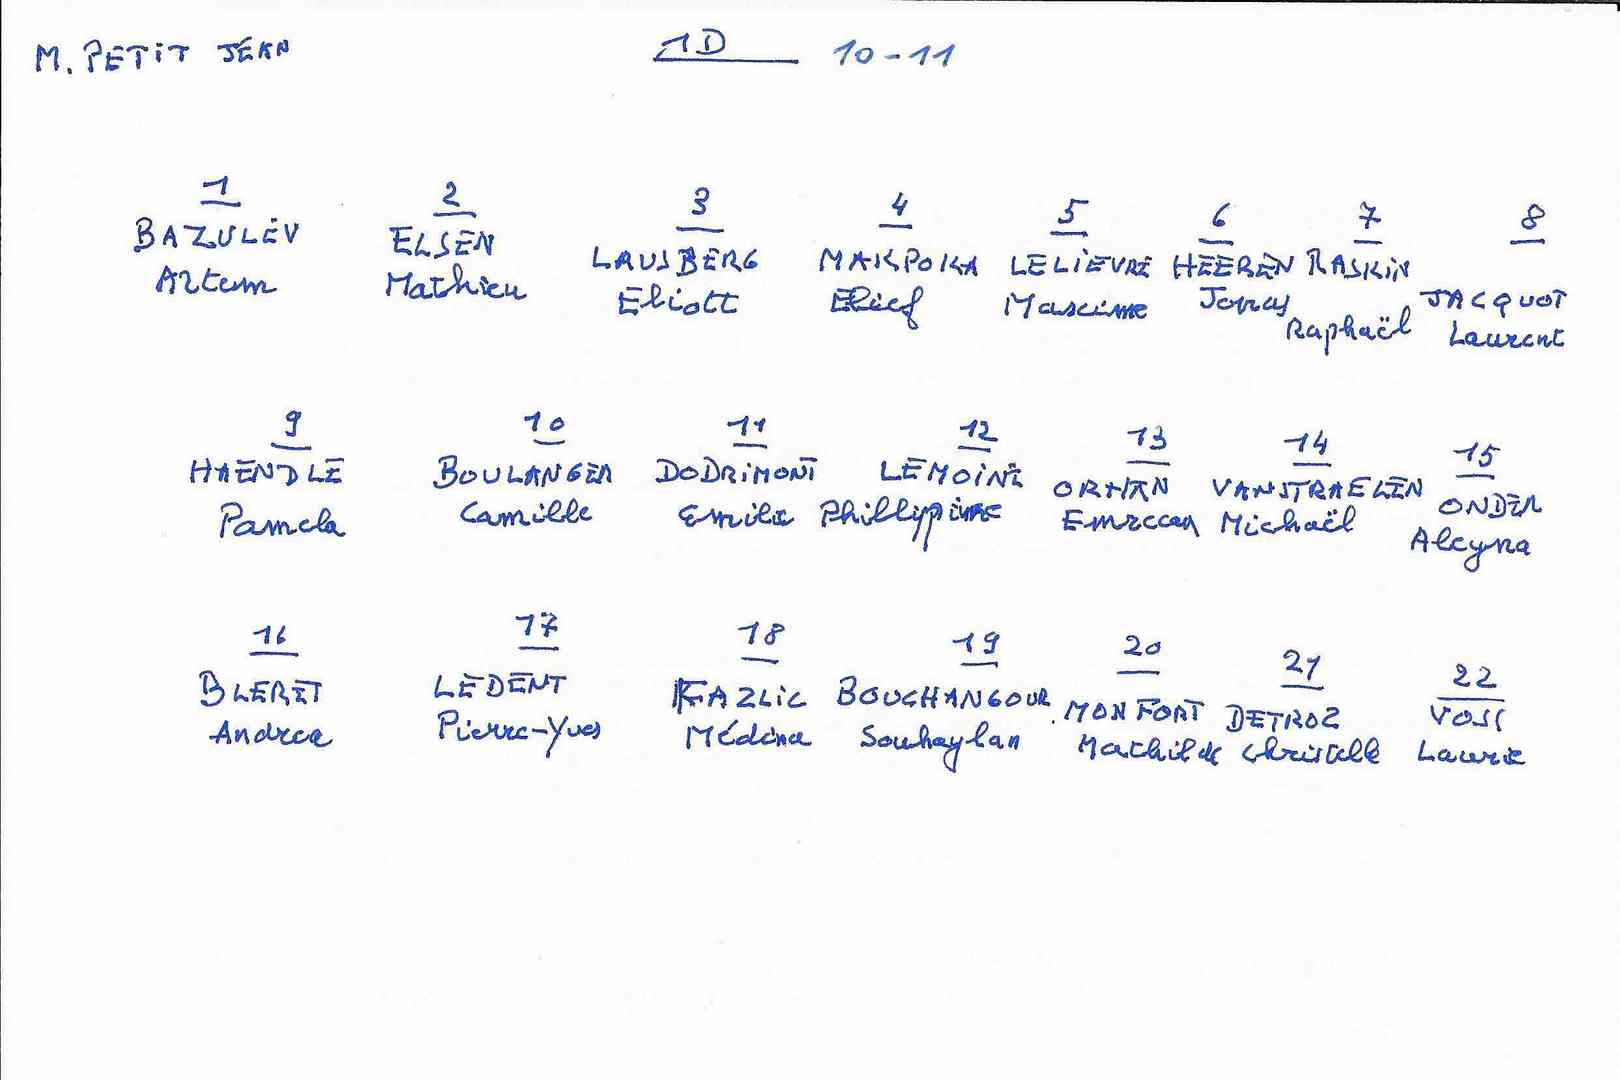 M. PETIT JEAN 1D 10-11
1 2 3 4 5 6 7 8
BAZULEV ELSEN LAUSBERG MAKPOKA LELIEVRE HEEREN RASKIN JACQUOT
Artem Mathieu Eliott Elief Maxime Jonas Raphaël Laurent
9 10 11 12 13 14 15
HAENDLE BOULANGER DODRIMONT LEMOINE ORHAN VANSTRAELEN ONDER
Pamela Camille Emilie Phillypine Emrecan Michaël Aleyna
16 17 18 19 20 21 22
BLERET LEDENT FAZLIC BOUCHANGOUR MONFORT DETROZ VOSS
Andrea Pierre-Yves Médina Souhaylan Mathilde Christelle Laurie